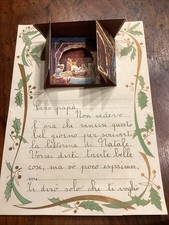 Caro papà,
Non vedevo
l'ora che venisse questo
bel giorno per scriverti
la letterina di Natale.
Vorrei dirti tante belle
cose, ma so poco esprimer
mi.
Ti dirò solo che ti voglio